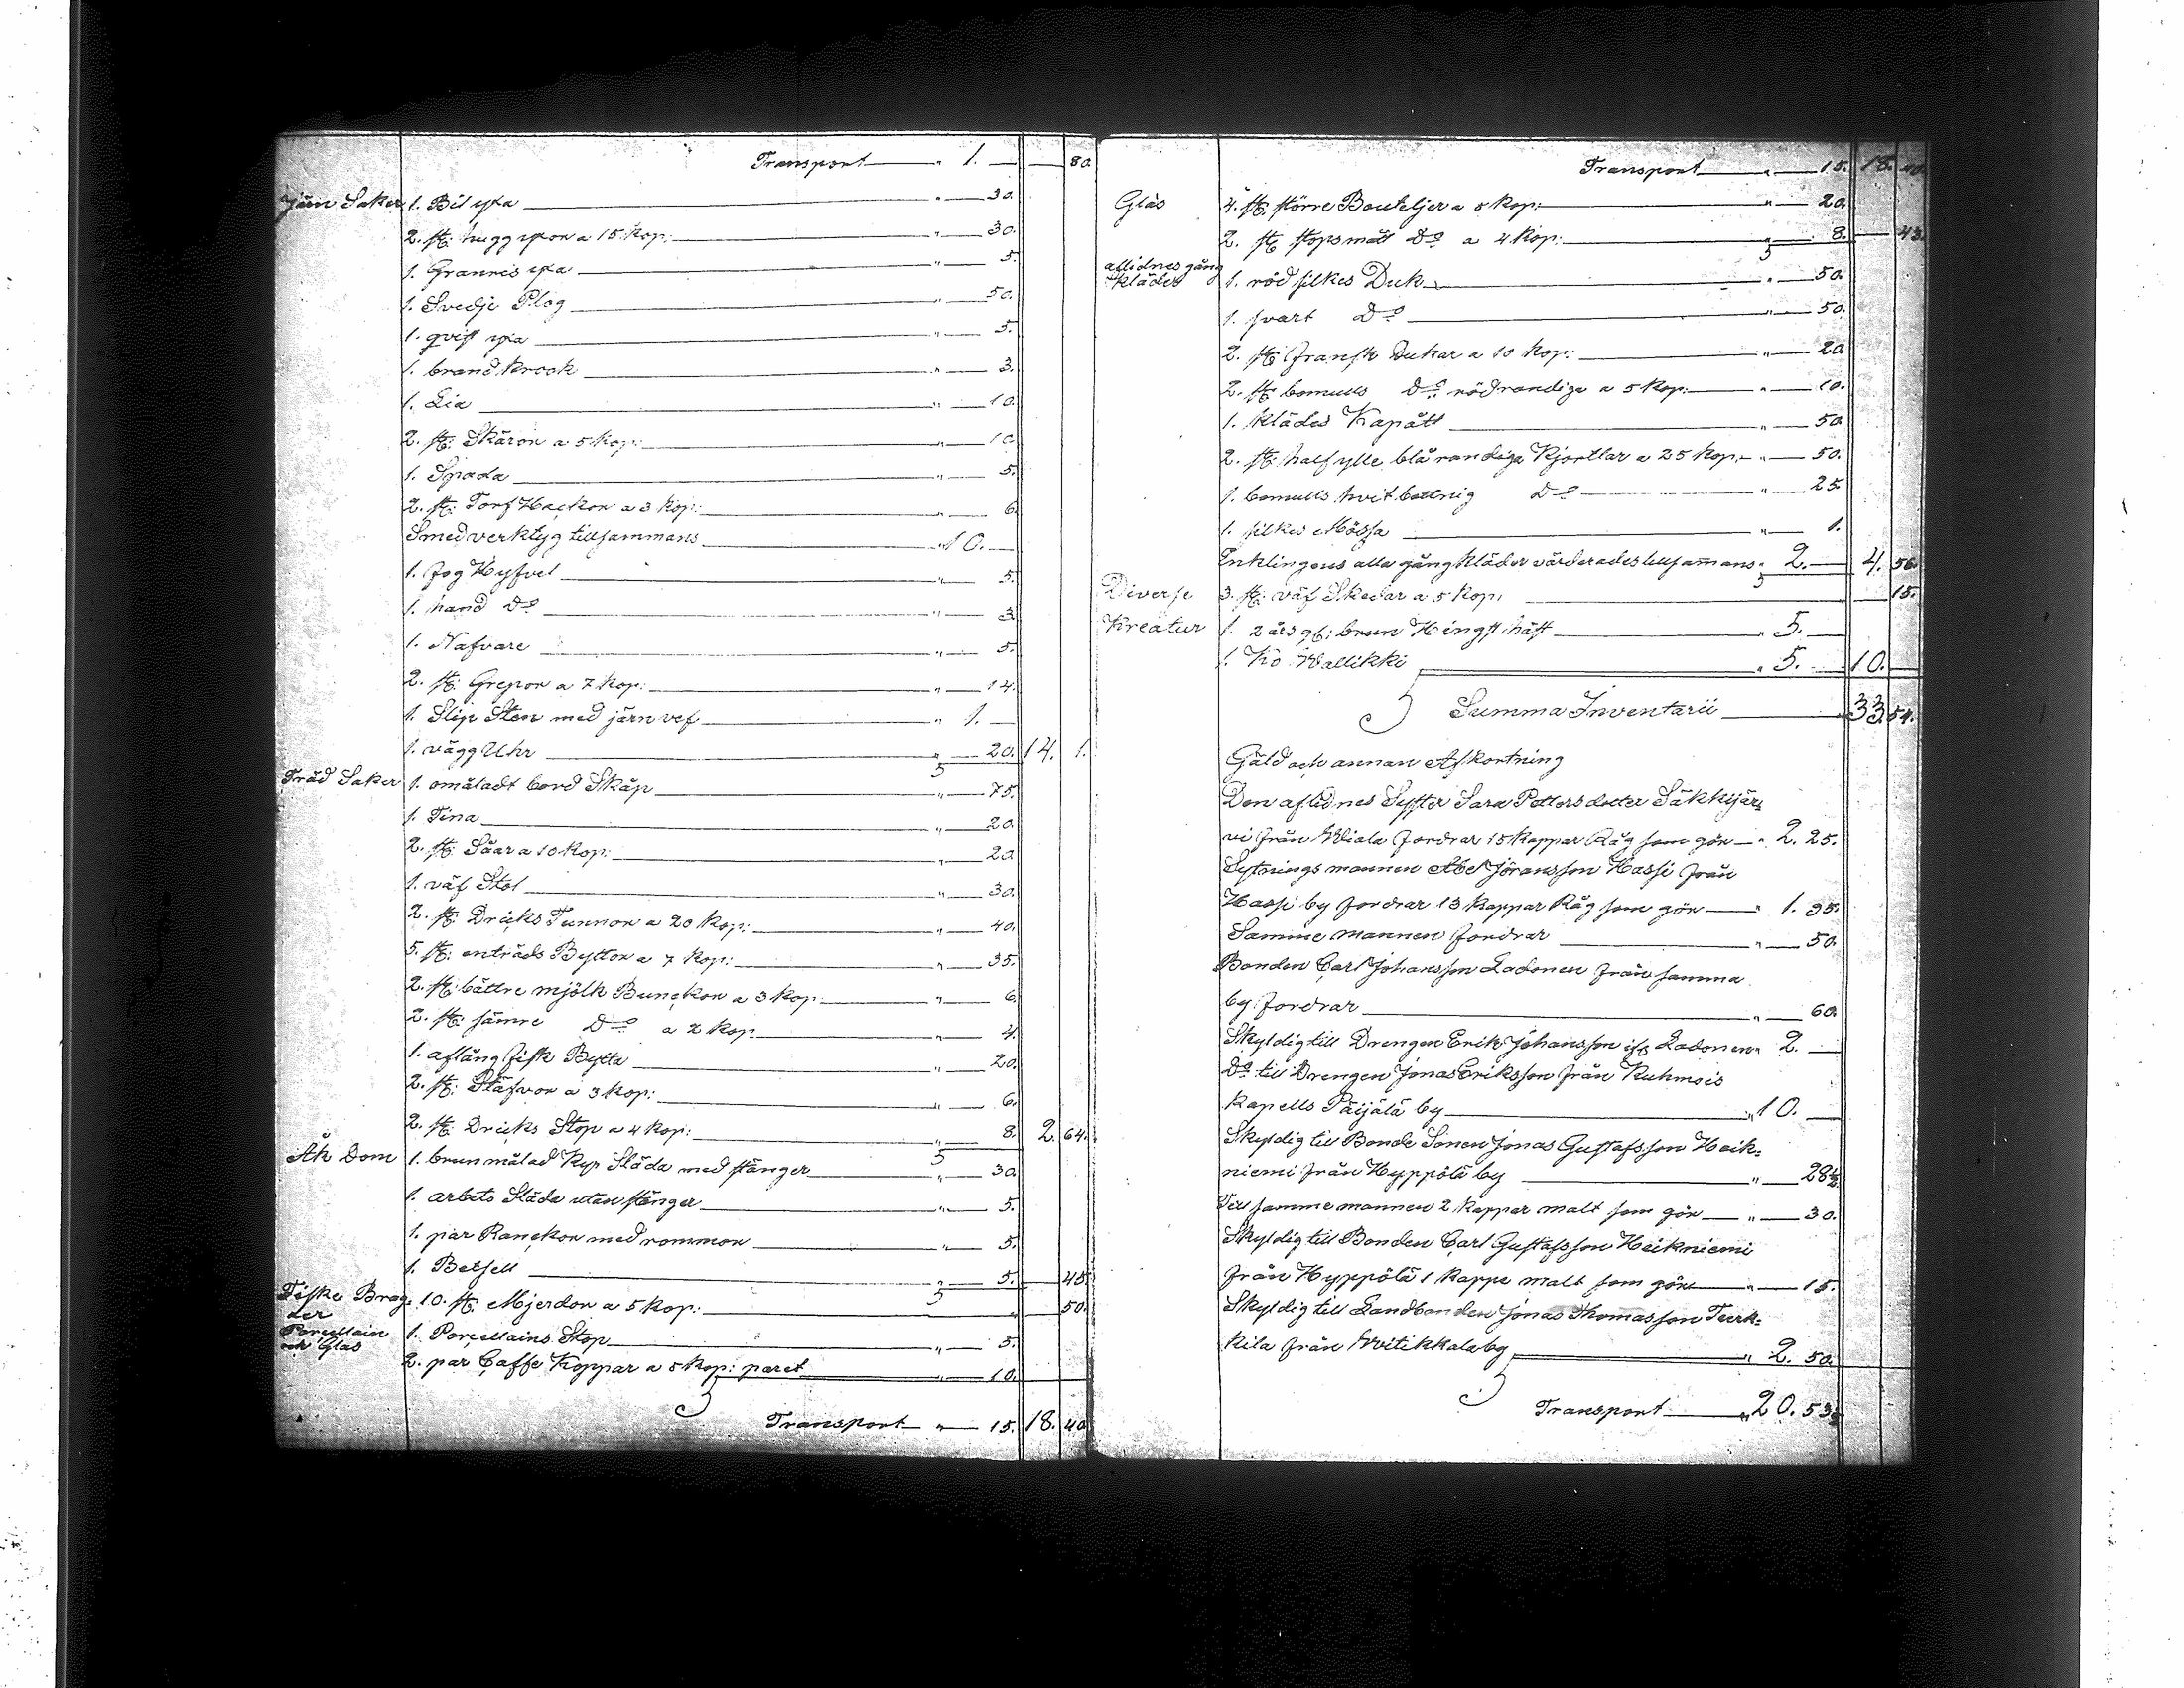 Transport „ 1. — — 80.
Järn Saker 1. Bil yxa „ — 30.
2. st: hugg yxor a 15 kop: „ — 30.
1. Grannis yxa „ — 5.
1. Svedje Plog „ — 50.
1. qvist yxa „ — 5.
1. brand krook „ — 3.
1. Lia „ — 10.
2. st: Skäror a 5 kop: „ — 10.
1. Spada „ — 5.
2. st: Torf Hackor a 3 kop: „ — 6.
Smed verktyg tillsammans „ 10. —
1. Fog Hyfvel „ — 5.
1. hand D:o „ — 3.
1. Nafvare „ — 5.
2. st: Grepor a 7 kop: „ — 14.
1. Slip Sten med järn vef „ 1. —
1. vägg Uhr „ — 20. 14. 1.
Träd Saker 1. omåladt bord Skåp „ — 75.
1. Tina „ — 20.
2. st: Såar a 10 kop: „ — 20.
1. väf Stol „ — 30.
2. st: Dricks Tunnor a 20 kop: „ — 40.
5. st: enträds Byttor a 7 kop: „ — 35.
2. st: bättre mjölk Bunckor a 3 kop: „ — 6.
2. st: sämre D:o a 2 kop: „ — 4.
1. aflång fisk Bytta „ — 20.
2. st: Stäfvor a 3 kop: „ — 6.
2. st: Dricks Stop a 4 kop: „ — 8. 2. 64.
Åk Don 1. brun målad kyr Släda med stänger „ — 30.
1. arbets Släda utan stänger „ — 5.
1. par Ranckor med rommor „ — 5.
1. Betsell „ — 5. — 45.
Fiske Brag- 10. st: Mjerdor a 5 kop: „ — 50.
der
Porcellain 1. Porcellains Stop „ — 5.
och Glas
2. par Caffe Koppar a 5 kop: paret „ — 10.
Transport „ — 15. 18. 40.
Transport „ — 15. 18. 40.
Glas 4. st: större Bouteljer a 5 kop: „ — 20.
2. st: stopsmått D:o a 4 kop: „ — 8. — 43.
aflidnes gång
kläder 1. röd silkes Duk „ — 50.
1. svart D:o „ — 50.
2. st: fransk Dukar a 10 kop: „ — 20.
2. st: bomulls D:o rödrandiga a 5 kop: „ — 10.
1. klädes Kapått „ — 50.
2. st: half ylle blå randiga Kjortlar a 25 kop: „ — 50.
1. bomulls hvit bottnig D:o „ — 25.
1. silkes Mössa „ — 1.
Enklingens alla gång kläder värderades tillsammans „ 2. — 4. 56.
Diverse 3. st: väf Skedar a 5 kop: — 15.
Kreatur 1. 2 års gl: brun Hingst häst „ 5. —
1. Ko Wallikki „ 5. — 10. —
Summa Inventarii 33. 54.
Gäld och annan Afkortning
Den aflidnes Syster Sara Pettersdotter Säkkijär-
vi från Wiala fordrar 15 kappar Råg som gör „ 2. 25.
Sytnings mannen Abel Jöransson Hassi från
Hassi by fordrar 13 kappar Råg som gör „ 1. 95.
Samme mannen fordrar „ — 50.
Bonden Carl Johansson Ladonen från samma
by fordrar „ — 60.
Skyldig till Drengen Erik Johansson ifr. Ladonen „ 2. —
D:o till Drengen Jonas Eriksson från Kuhmois
kapells Päijälä by „ 10. —
Skyldig till Bonde Sonen Jonas Gustafsson Heik-
niemi från Hyppölä by „ — 28½
Till samme mannen 2 kappar malt som gör „ — 30.
Skyldig till Bonden Carl Gustafsson Heikniemi
från Hyppölä 1 kappe malt som gör „ — 15.
Skyldig till Landbonden Jonas Thomasson Turk-
kila från Witikkala by „ 2. 50.
Transport „ 20. 53½